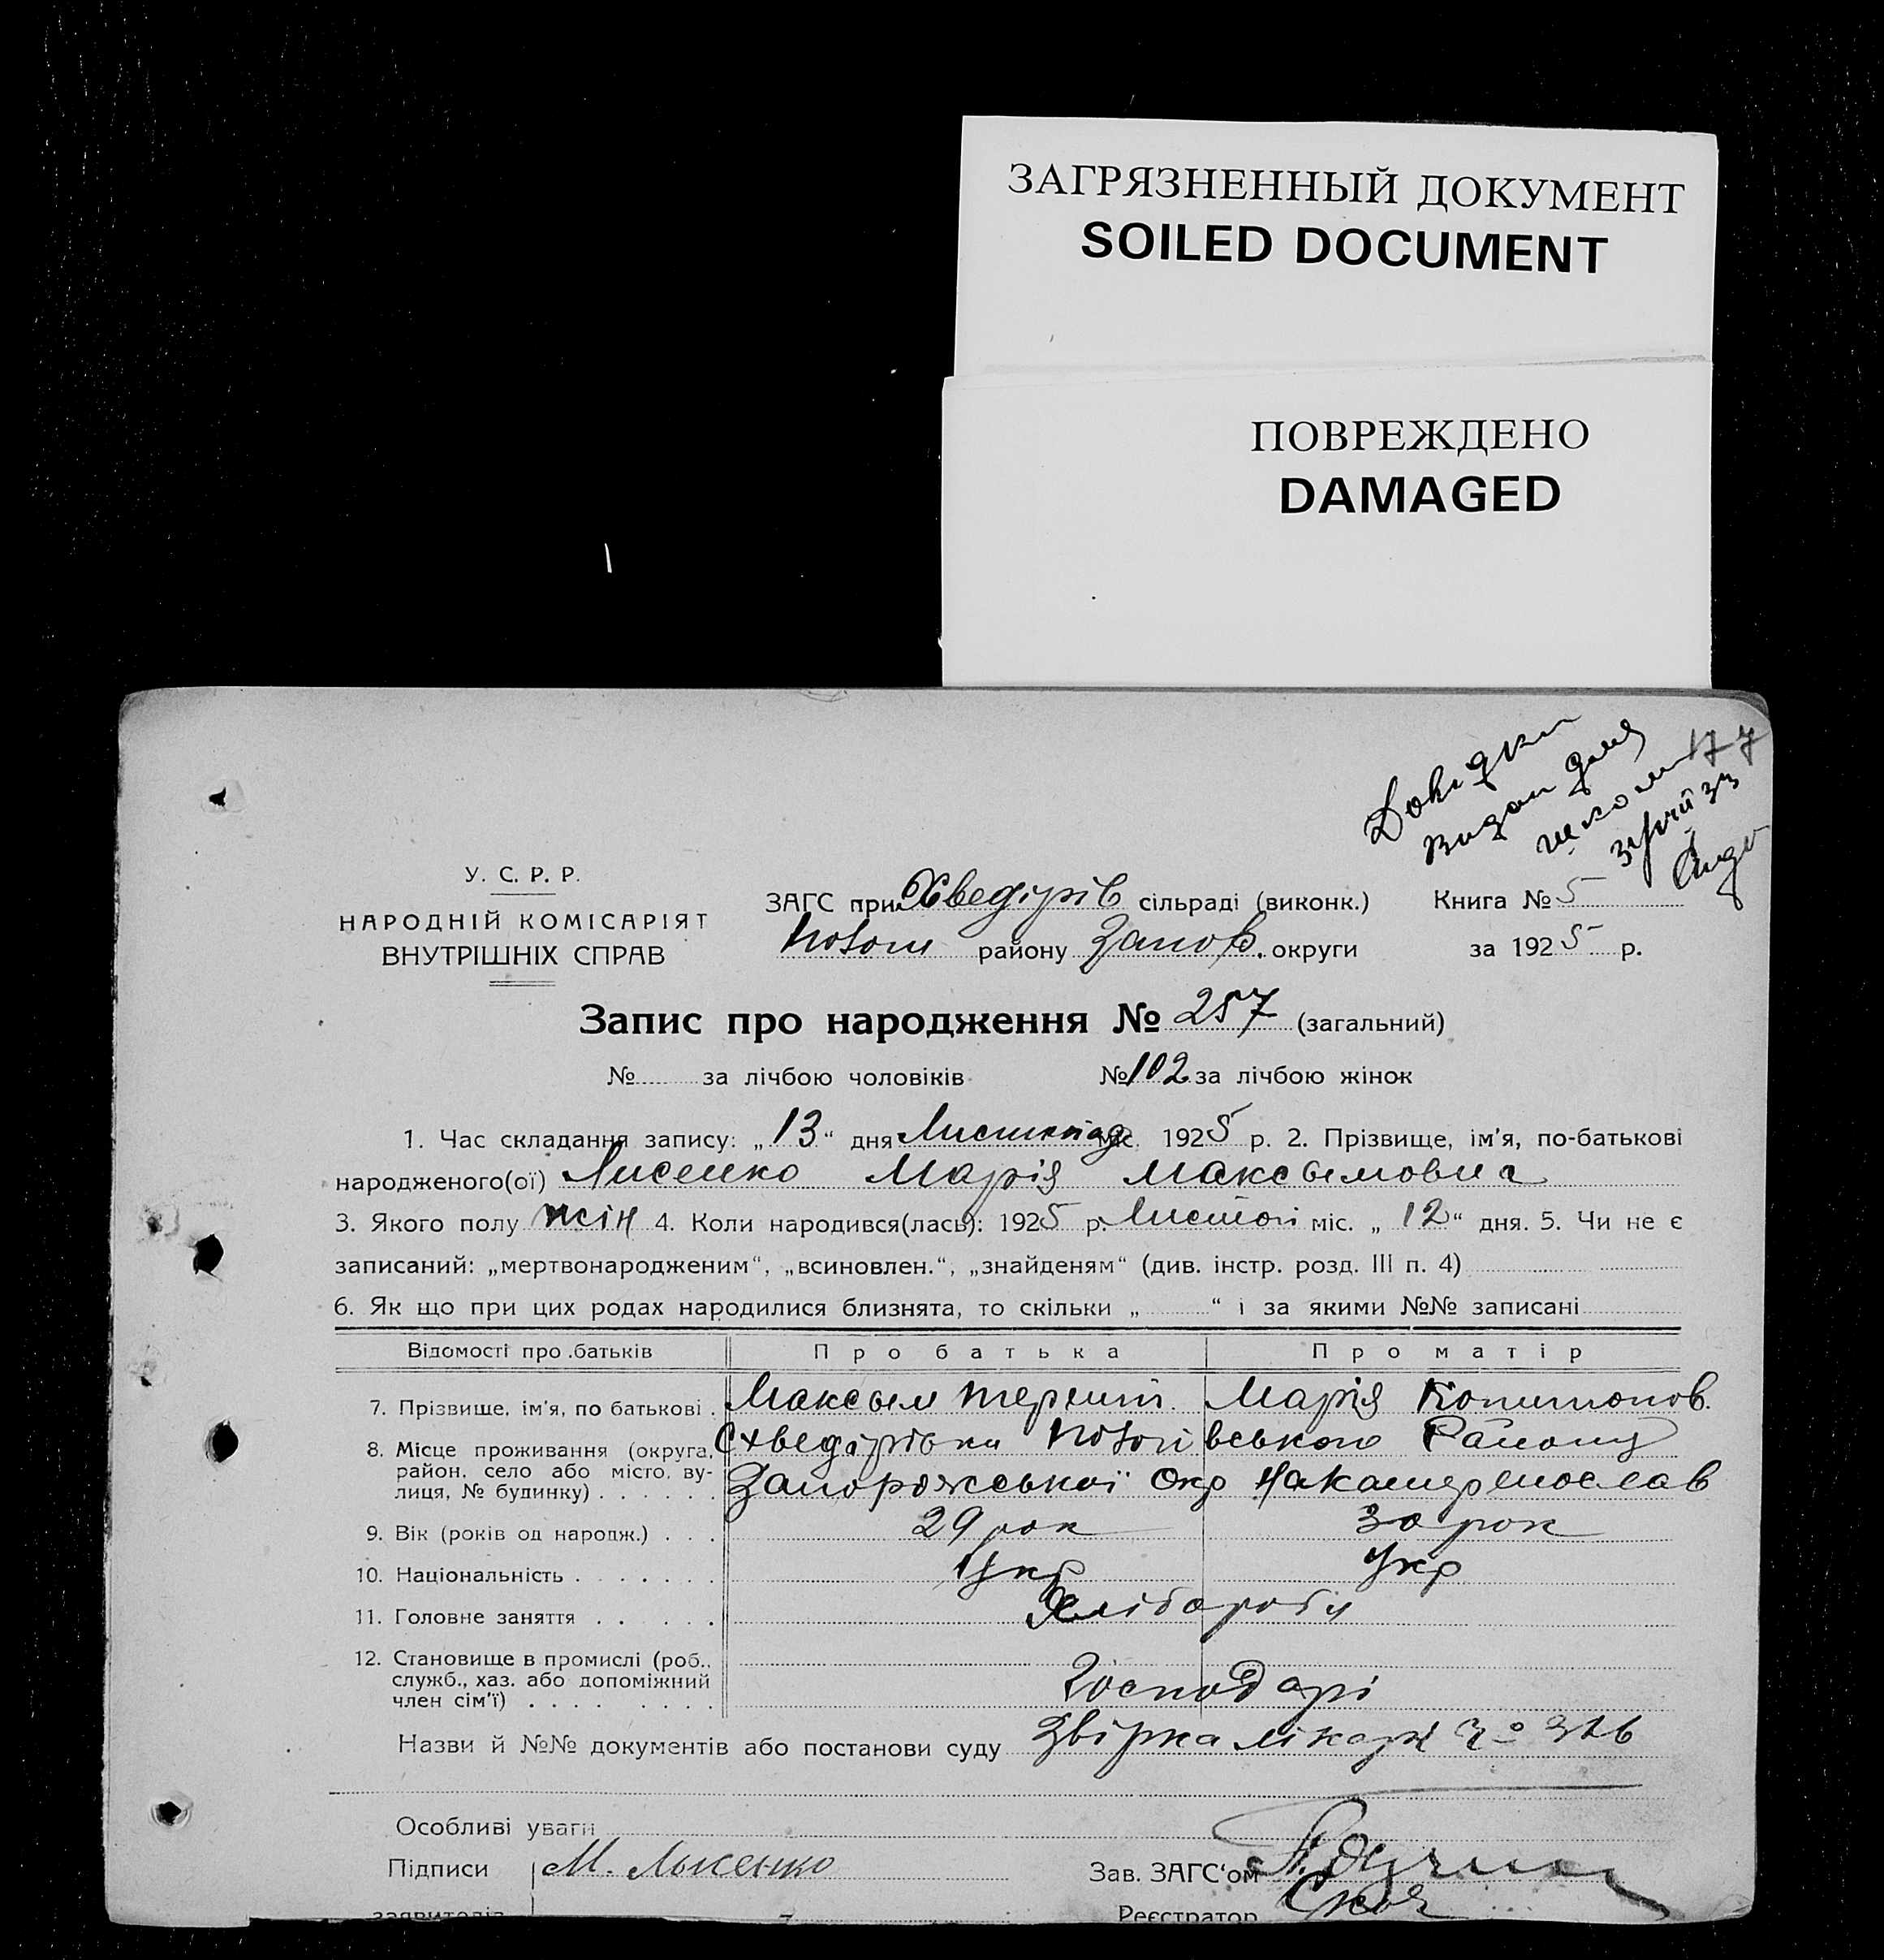 ЗАГРЯЗНЕННЫЙ ДОКУМЕНТ
SOILED DOCUMENT
ПОВРЕЖДЕНО
DAMAGED
177
Довідки
видан для
школи
У. С. Р. Р.
НАРОДНІЙ КОМІСАРІЯТ
ВНУТРІШНІХ СПРАВ
ЗАГС при Хведірів сільраді (виконк.) Книга № 5
району Запор. округи за 1925 р.
Запис про народження № 257 (загальний)
№ за лічбою чоловіків № 102 за лічбою жінок
1. Час складання запису: „13“ дня Листопад міс. 1925 р. 2. Прізвище, ім'я, по-батькові
народженого(ої) Лисенко Марія Максымовна
3. Якого полу жін 4. Коли народився(лась): 1925 р. Листоп міс. „12“ дня. 5. Чи не є
записаний: „мертвонародженим“, „всиновлен.“, „знайденям“ (див. інстр. розд. III п. 4)
6. Як що при цих родах народилися близнята, то скільки „ “ і за якими №№ записані
Відомості про батьків Про батька Про матір
7. Прізвище, ім'я, по батькові . Максым Марія
8. Місце проживання (округа, район, село або місто, вулиця, № будинку) . . . . . . Схведірівка Району
Запорожської Окр
9. Вік (років од народж.) . . . 29 рок 30 рок
10. Національність . . . . . . . Укр Укр
11. Головне заняття . . . . . Хлібороби
12. Становище в промислі (роб., служб., хаз. або допоміжний член сім'ї) . . . . . . . . Господарі
Назви й №№ документів або постанови суду Звірка лікаря
Особливі уваги
Підписи М. Лысенко Зав. ЗАГС'ом
заявителів Реєстратор